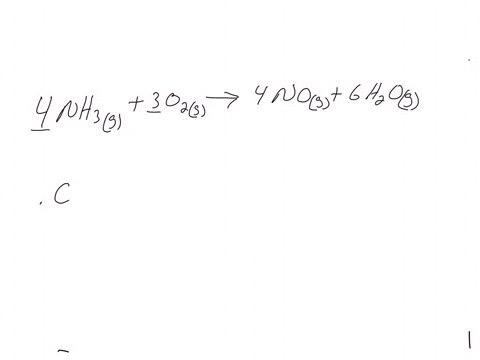 4 NH₃(g) + 3 O₂(g) → 4 NO(g) + 6 H₂O(g)
. C